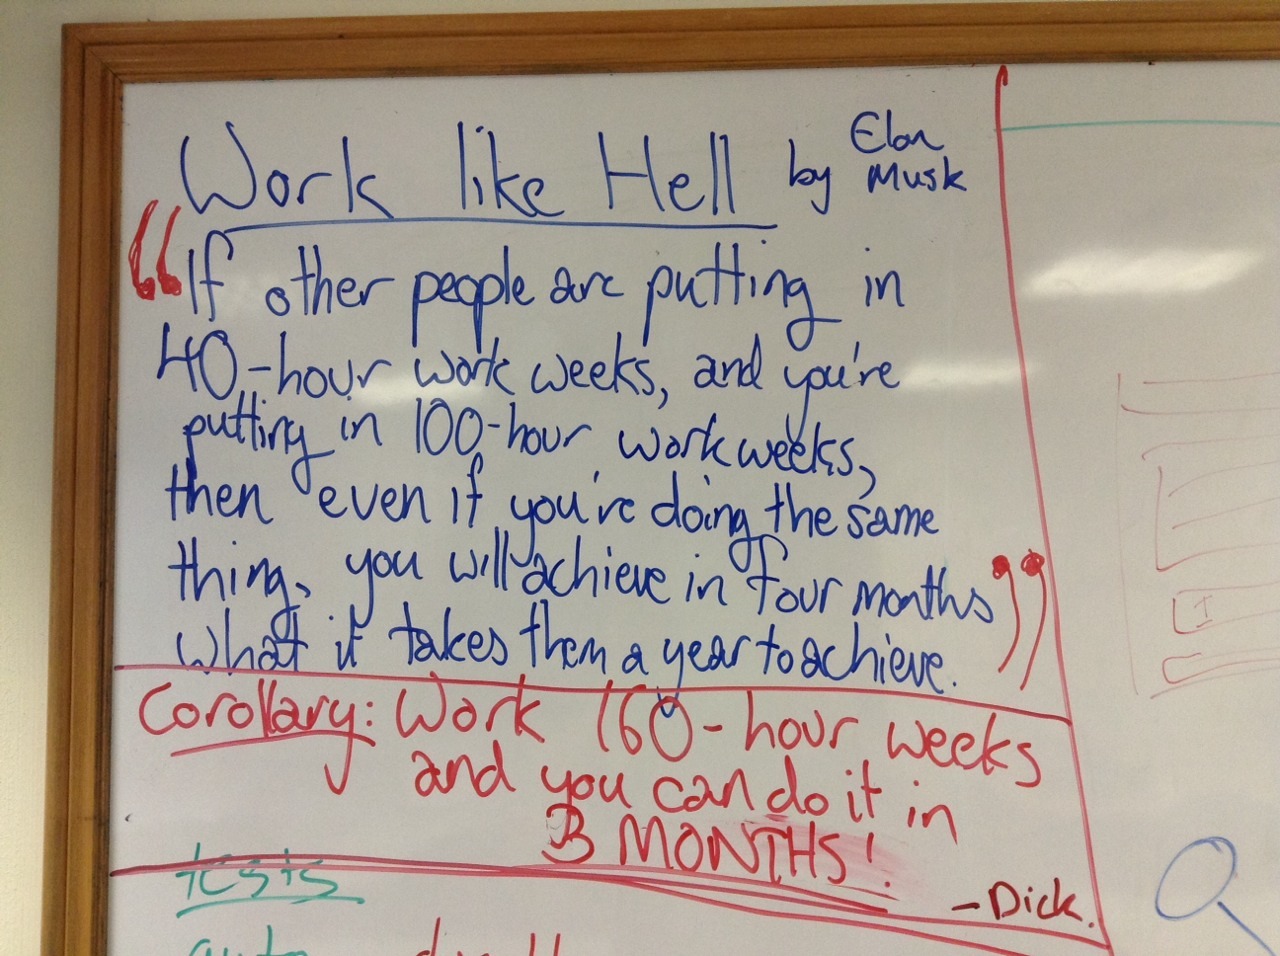 Work like Hell by Elon Musk
“If other people are putting in
40-hour work weeks, and you're
putting in 100-hour workweeks,
then even if you're doing the same
thing, you will achieve in four months
what it takes them a year to achieve.”
Corollary: Work 160-hour weeks
and you can do it in
3 MONTHS!
-Dick.
tests
auto